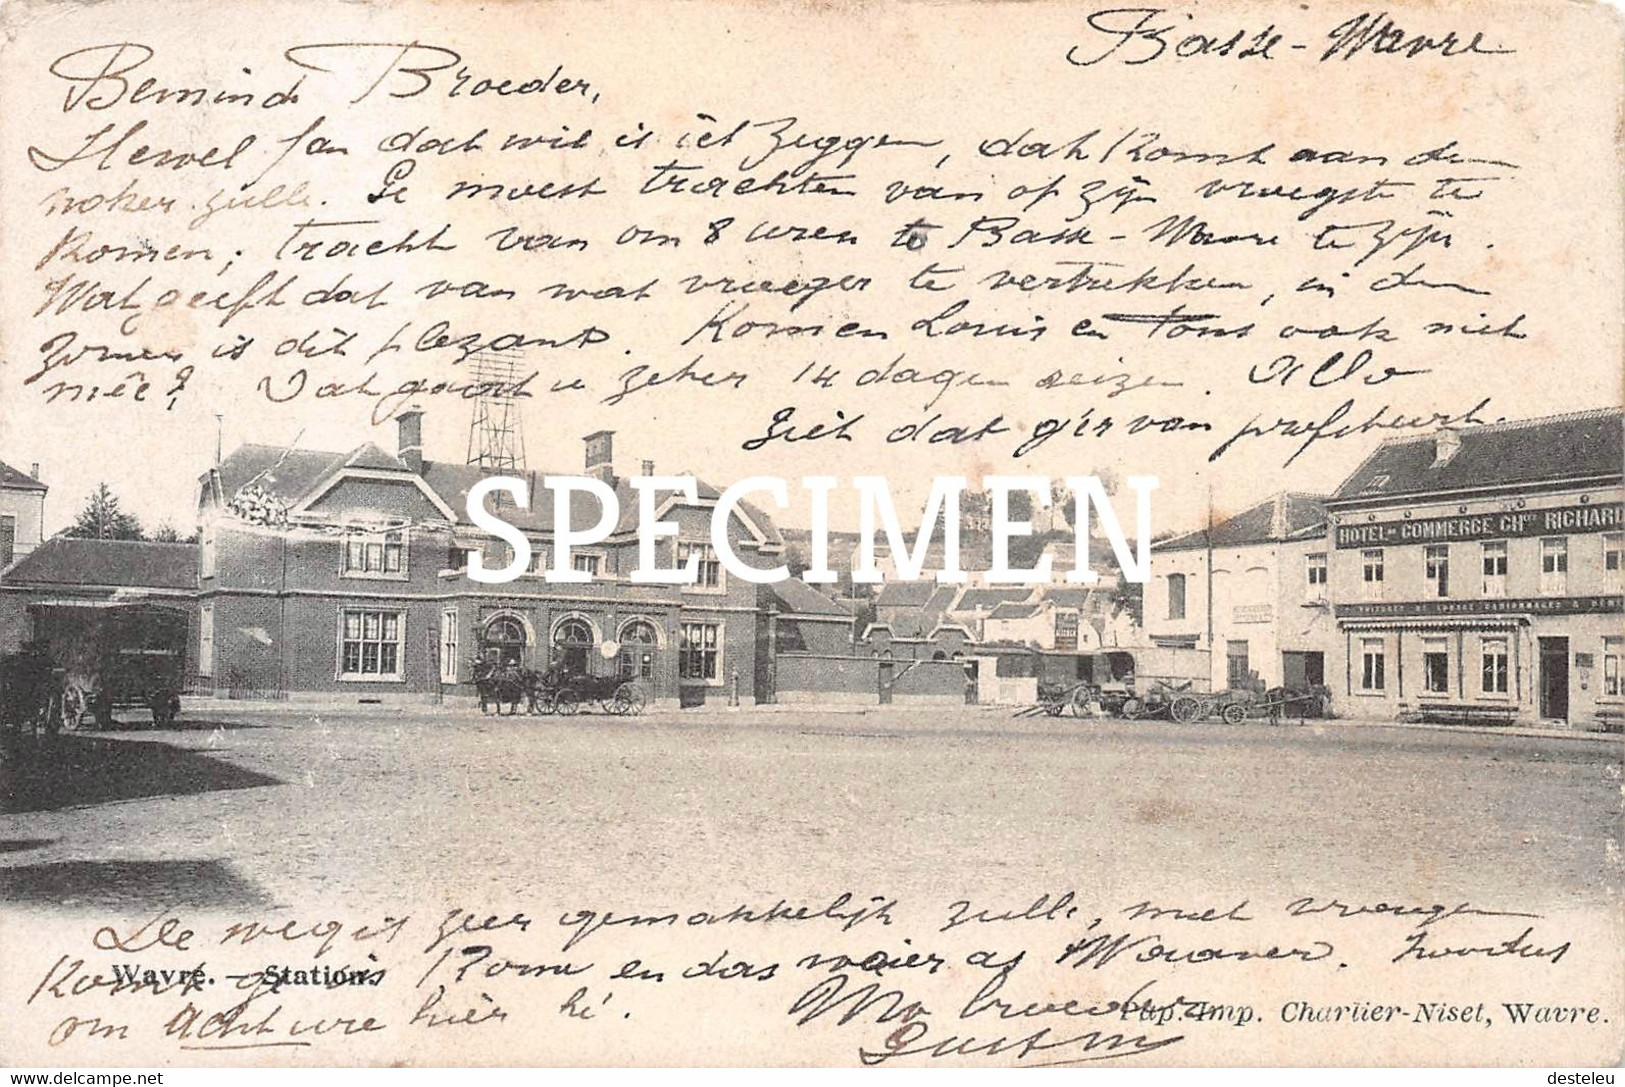 Basse-Wavre
Beminde Broeder,
Hewel fan dat wil is iet zeggen, dat komt aan den
noker zulle. Ge moest trachten van op zijn vroegste te
komen; tracht van om 8 uren te Basse-Wavre te zijn.
Wat geeft dat van wat vroeger te vertrekken, in den
zomer is dit plezant. Komen Louis en Tons ook niet
mêe? Dat goort u zeker 14 dagen reizen. Allo
Ziet dat g'er van profiteert.
SPECIMEN
HOTEL DU COMMERCE CH. RICHARD
De weg is zeer gemakkelijk zulle, met vroegen
komt ge in Rome en das waier as Wouaver.
om acht ure hièr hé.
Uw broeder
Gustin
Wavre. — Station.
Pap. Imp. Charlier-Niset, Wavre.
www.delcampe.net
desteleu